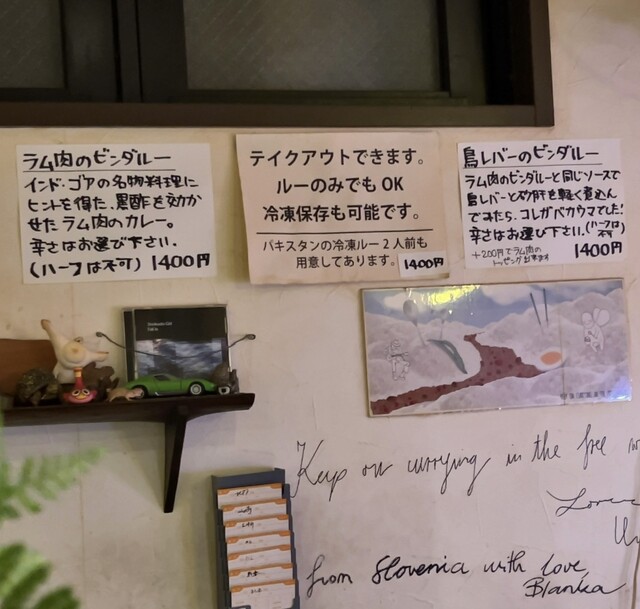 ラム肉のビンダルー
インド・ゴアの名物料理に
ヒントを得た、黒酢を効か
せたラム肉のカレー。
辛さはお選び下さい。
(ハーフは不可) 1400円
テイクアウトできます。
ルーのみでも OK
冷凍保存も可能です。
パキスタンの冷凍ルー2人前も
用意してあります。 1400円
鳥レバーのビンダルー
ラム肉のビンダルーと同じソースで
鳥レバーと砂肝を軽く煮込ん
でみたら、コレがバカウマでした!
辛さはお選び下さい。(ハーフは不可)
+200円でラム肉の
トッピング出来ます 1400円
Keep on currying in the free
from Slovenia with love
Blanka